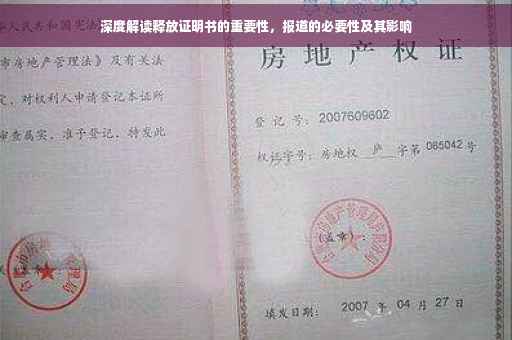 深度解读释放证明书的重要性，报道的必要性及其影响
人民共和国宪法
市房地产管理法》及有关法
定，对权利人申请登记本证所
审查属实，准予登记，特发此
房地产权证
登记号：2007609602
权证字号：房地权 庐 字第 065042 号
(盖章)：
填发日期：2007 年 04 月 27 日